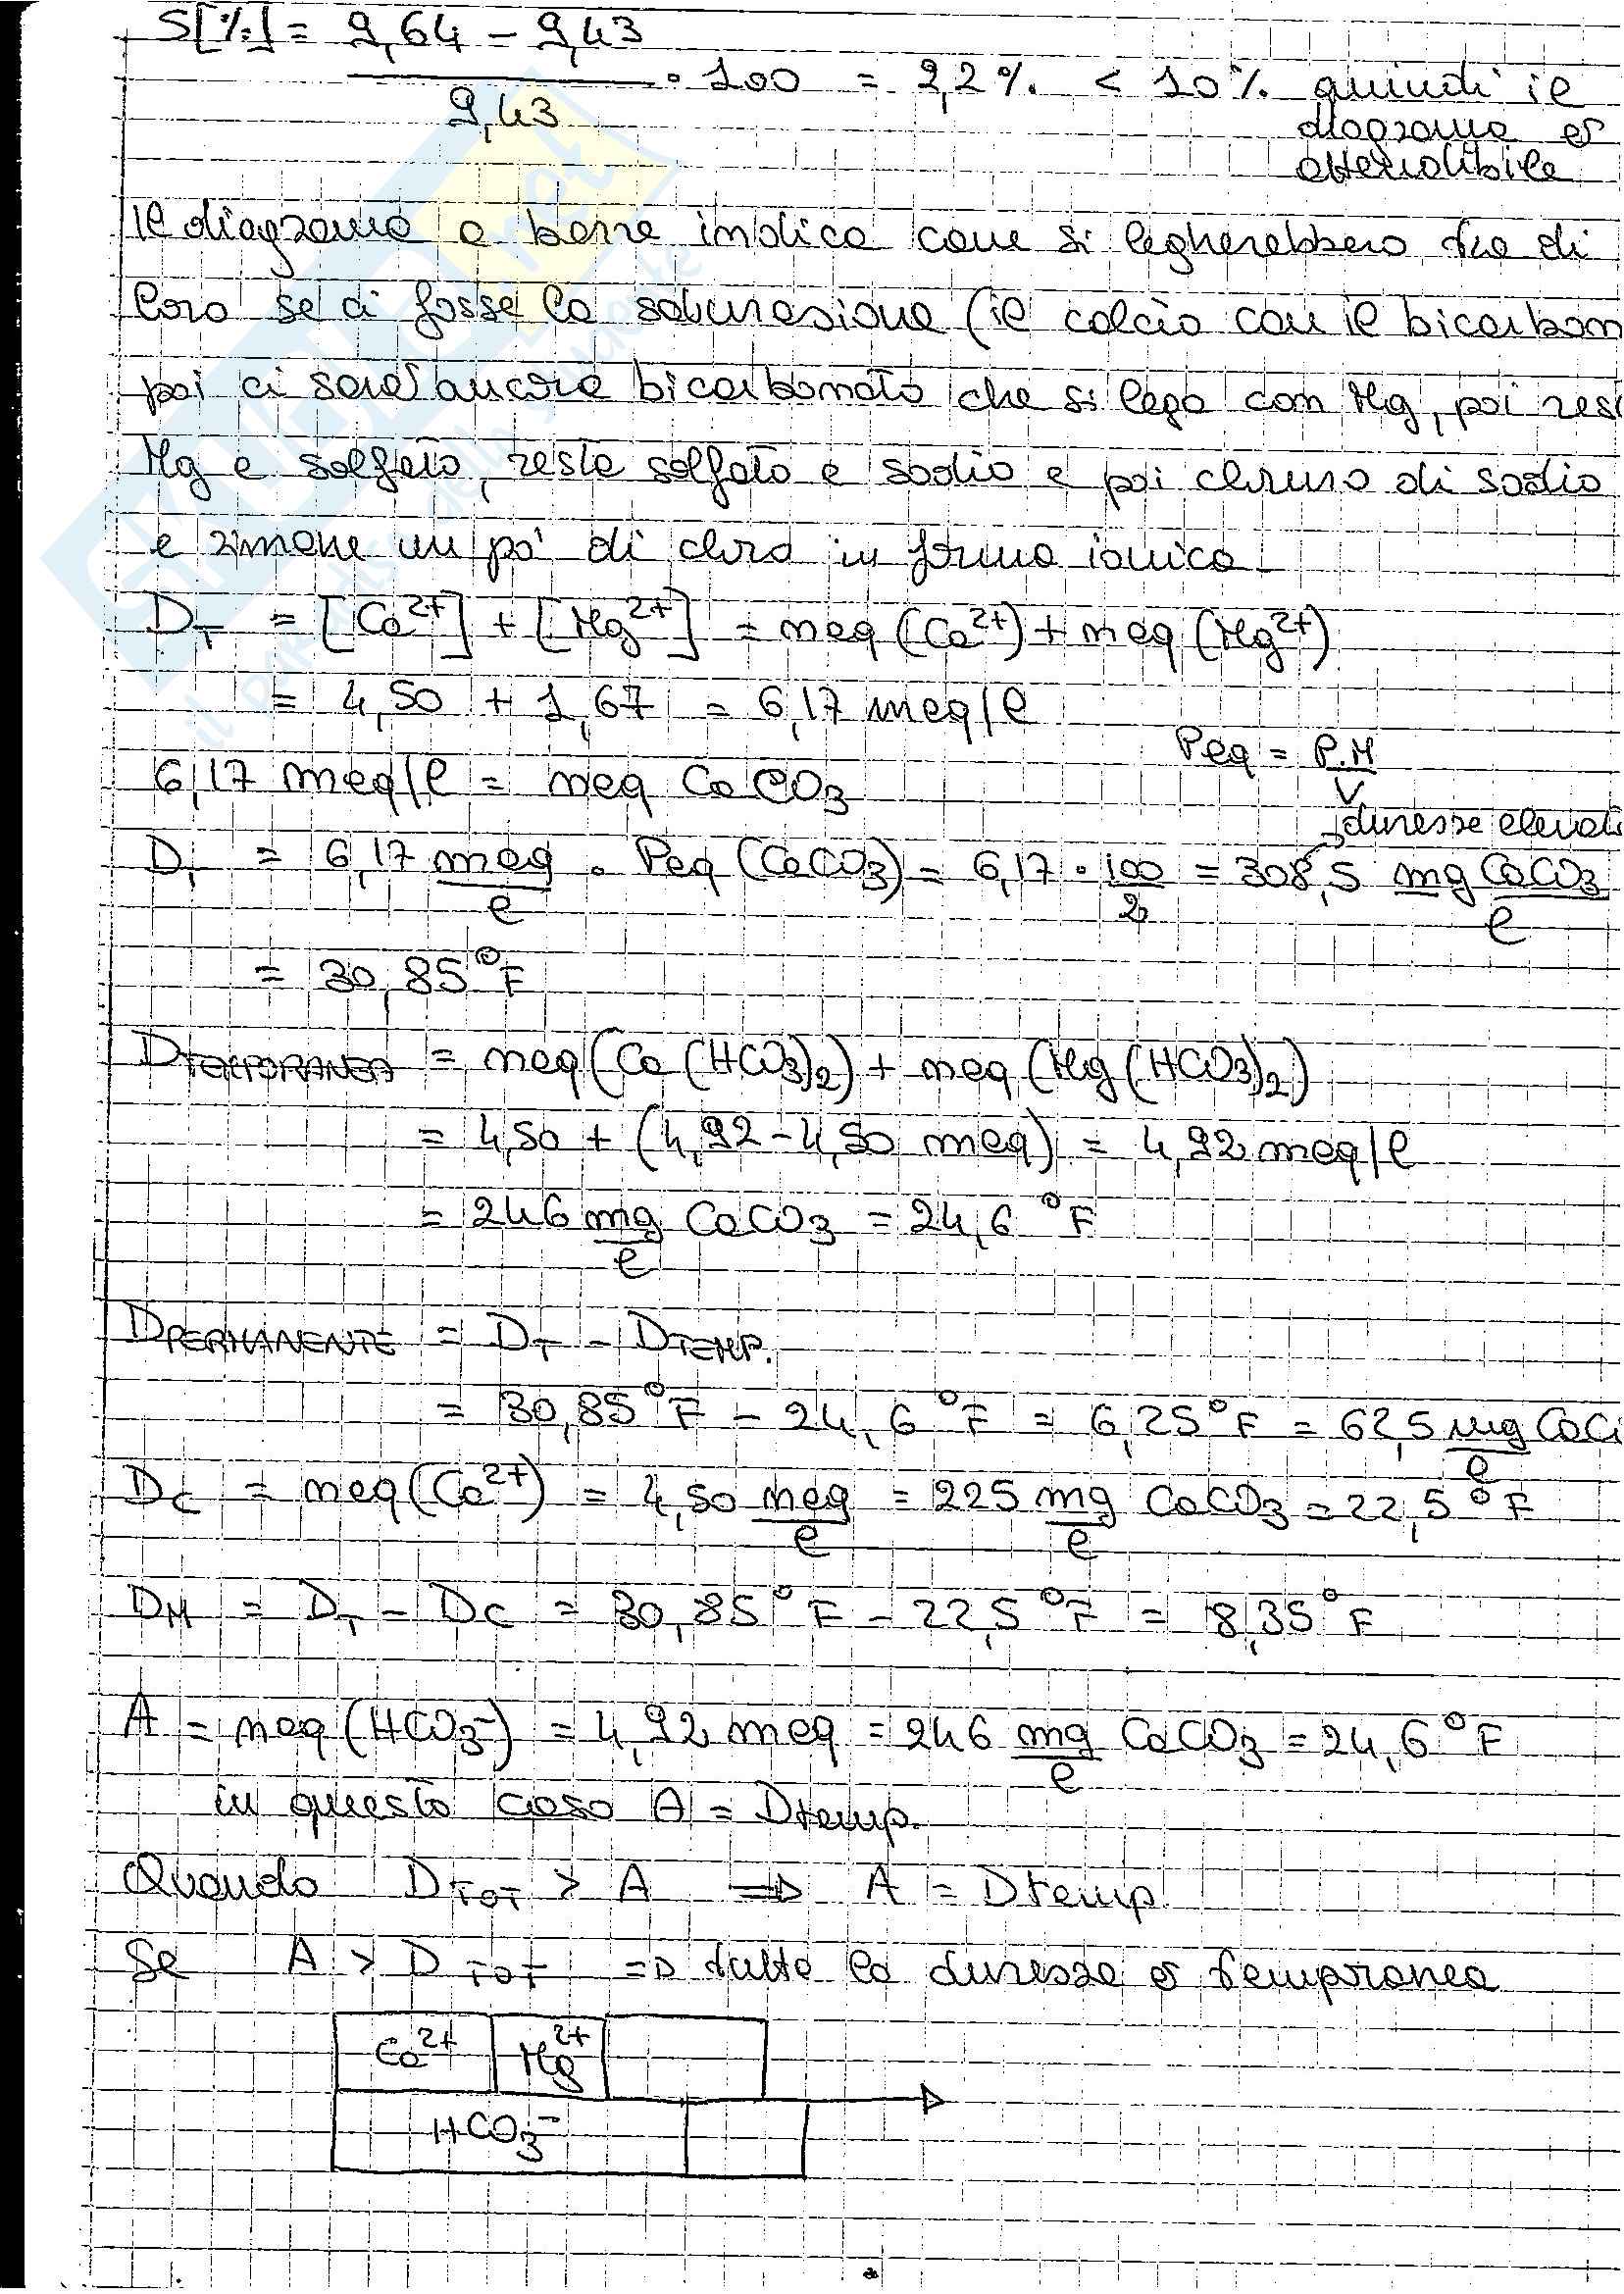 S[%] = 9,64 - 9,43 / 9,43 · 100 = 2,2% < 10% quindi il
diagramma è
attendibile
Il diagramma a barre indica come si legherebbero tra di
loro se ci fosse la saturazione (il calcio con il bicarbon
poi ci sarà ancora bicarbonato che si lega con Mg, poi res
Mg e solfato, resta solfato e sodio e poi cloruro di sodio
e rimane un po' di cloro in forma ionica
D_T = [Ca²⁺] + [Mg²⁺] = meq (Ca²⁺) + meq (Mg²⁺)
= 4,50 + 1,67 = 6,17 meq/l
6,17 meq/l = meq CaCO₃
Peq = P.M / V
D_T = 6,17 meq/l · Peq (CaCO₃) = 6,17 · 100/2 = 308,5 mg CaCO₃/l
→ durezza elevat
= 30,85 °F
D_TEMPORANEA = meq (Ca(HCO₃)₂) + meq (Mg(HCO₃)₂)
= 4,50 + (4,92 - 4,50 meq) = 4,92 meq/l
= 246 mg/l CaCO₃ = 24,6 °F
D_PERMANENTE = D_T - D_TEMP.
= 30,85 °F - 24,6 °F = 6,25 °F = 62,5 mg/l CaC
D_C = meq (Ca²⁺) = 4,50 meq/l = 225 mg/l CaCO₃ = 22,5 °F
D_M = D_T - D_C = 30,85 °F - 22,5 °F = 8,35 °F
A = meq (HCO₃⁻) = 4,92 meq = 246 mg/l CaCO₃ = 24,6 °F
in questo caso A = Dtemp.
Quando D_TOT > A ⇒ A = Dtemp.
Se A > D_TOT ⇒ tutta la durezza è temporanea
Ca²⁺ Mg²⁺
HCO₃⁻